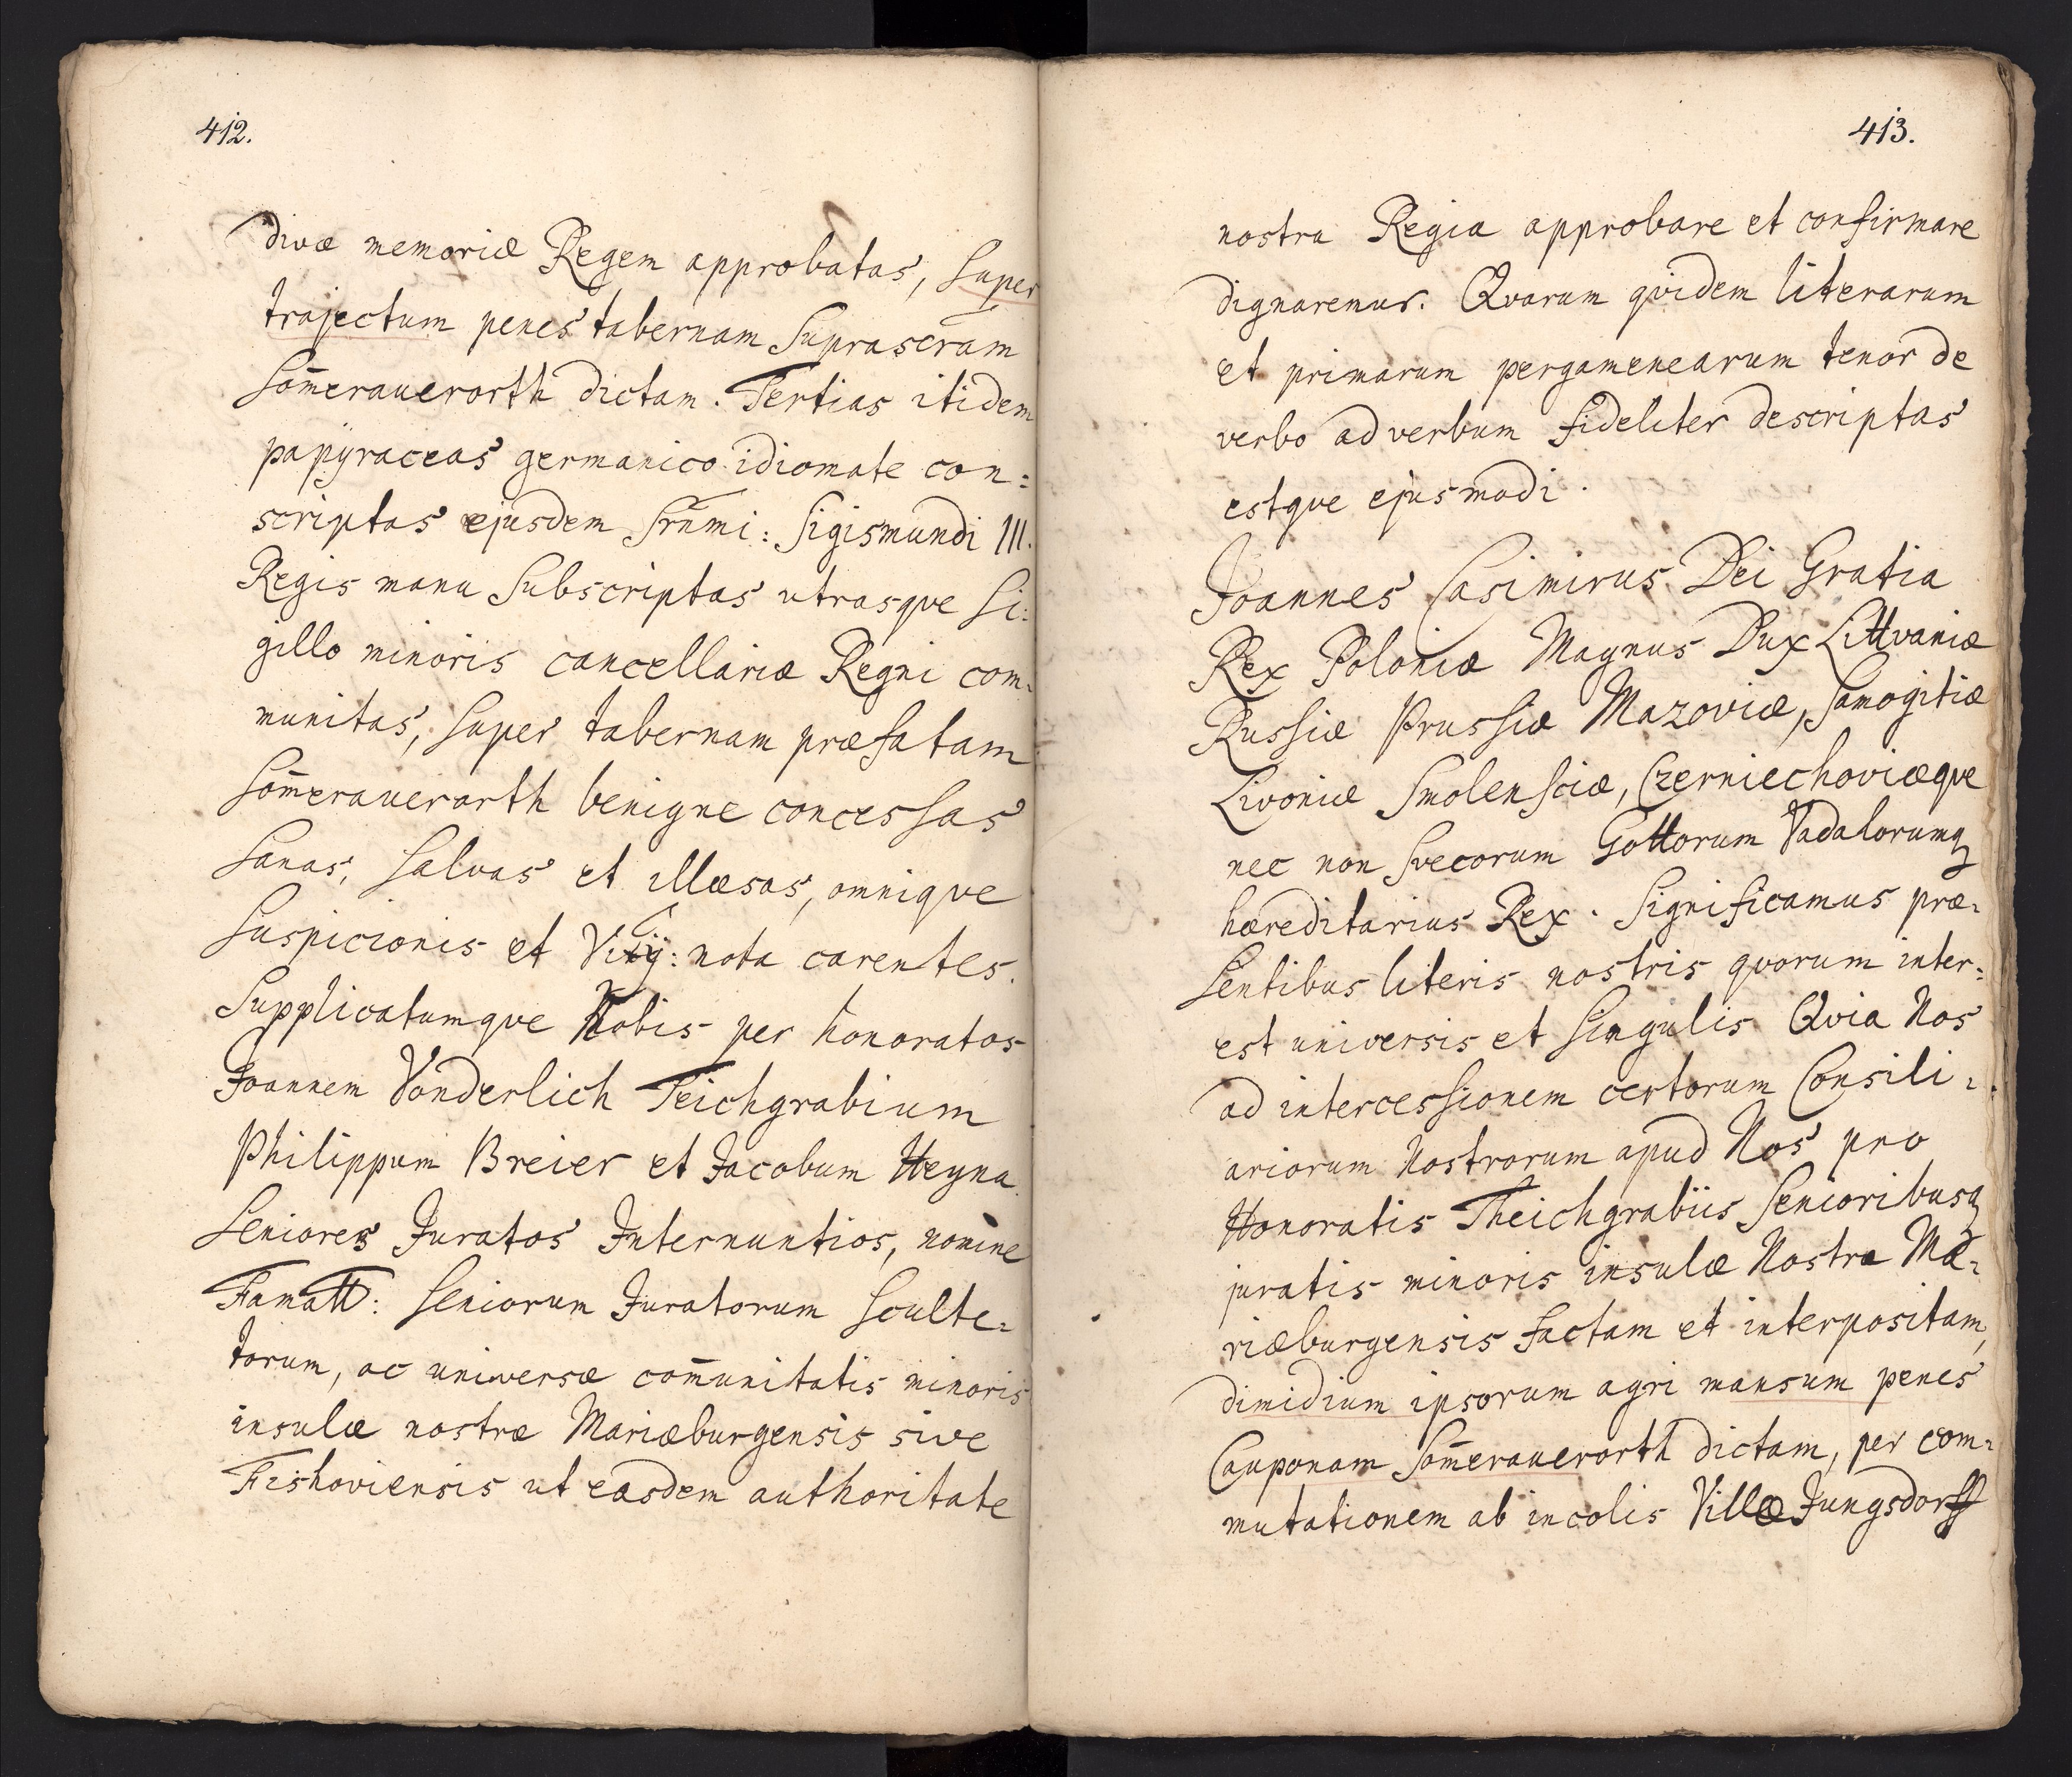 412.
divæ memoriæ Regem approbatas, super
trajectum penes tabernam Suprascram
Som̄erauerorth dictam. Tertias itidem
papÿraceas germanico idiomate con=
scriptas ejusdem Srn̄mi: Sigismundi III.
Regis manu Subscriptas utrasque Si:
gillo minoris cancellariæ Regni com=
munitas, super tabernam præfatam
Som̄erauerorth benigne concessas
Sanas, salvas et illæsas, omnique
Suspicionis et Vitÿ: nota carentes.
Supplicatumque Nobis per honoratos
Joannem Vonderlich Teichgrabium
Philippum Breier et Jacobum Heyna
Seniores Juratos Internuntios, nomine
Famatt: Seniorum Juratorum Sculte=
torum, ac universæ com̄unitatis minoris
insulæ nostræ Mariæburgensis sive
Fishoviensis ut easdem authoritate
413.
nostra Regia approbare et confirmare
dignaremur. Qvarum qvidem literarum
et primarum pergamenearum tenor de
verbo ad verbum fideliter descriptas
estqve ejusmodi.
Joannes Casimirus Dei Gratia
Rex Poloniæ Magnus Dux Littvaniæ
Russiæ Prussiæ Mazoviæ, Samogitiæ
Livoniæ Smolensciæ, Czerniechoviæqve
nec non Svecorum Gottorum Vadalorumq
hæreditarius Rex. Significamus præ=
Sentibus literis nostris qvorum inter=
est universis et Singulis Qvia Nos
ad intercessionem certorum Consili=
ariorum Nostrorum apud Nos pro
Honoratis Theichgrabiis Senioribusq
juratis minoris insulæ Nostra Ma=
riæburgensis factam et interpositam,
dimidium ipsorum agri mansum penes
Cauponam Som̄erauerorth dictam, per com=
mutationem ab incolis Villæ Jungsdorff